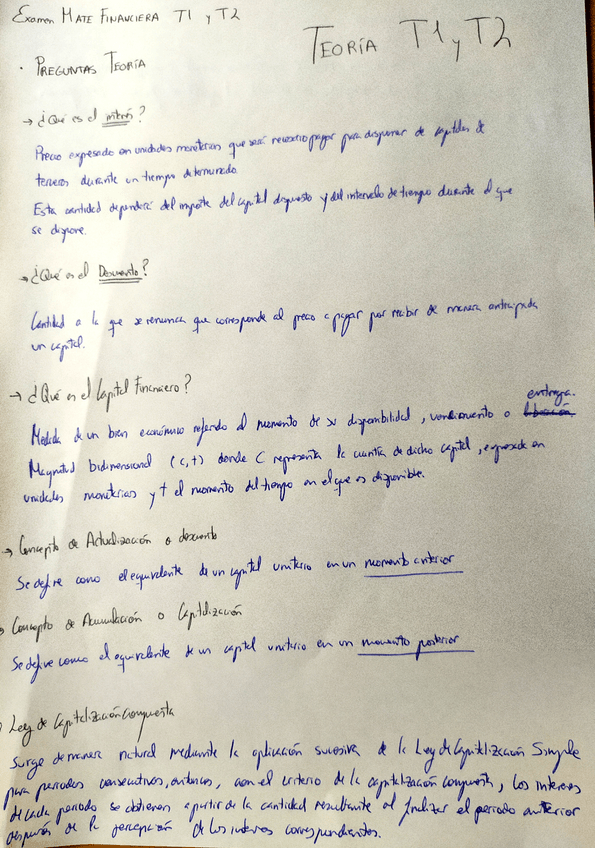 Examen MATE FINANCIERA T1 y T2
TEORÍA T1 y T2
· PREGUNTAS TEORÍA
→ ¿Qué es el interés?
Precio expresado en unidades monetarias que será necesario pagar para disponer de capitales de
terceros durante un tiempo determinado.
Esta cantidad dependerá del importe del capital dispuesto y del intervalo de tiempo durante el que
se dispone.
→ ¿Qué es el Descuento?
Cantidad a la que se renuncia que corresponde al precio a pagar por recibir de manera anticipada
un capital.
→ ¿Qué es el Capital Financiero?
Medida de un bien económico referida al momento de su disponibilidad, vencimiento o entrega.
Magnitud bidimensional (c,t) donde C representa la cuantía de dicho capital, expresada en
unidades monetarias y t el momento del tiempo en el que es disponible.
→ Concepto de Actualización o descuento
Se define como el equivalente de un capital unitario en un momento anterior
→ Concepto de Acumulación o Capitalización
Se define como el equivalente de un capital unitario en un momento posterior
Ley de Capitalización Compuesta
Surge de manera natural mediante la aplicación sucesiva de la Ley de Capitalización Simple
para periodos consecutivos, entonces, con el criterio de la capitalización compuesta, los intereses
de cada periodo se obtienen a partir de la cantidad resultante al finalizar el periodo anterior
después de la percepción de los intereses correspondientes.